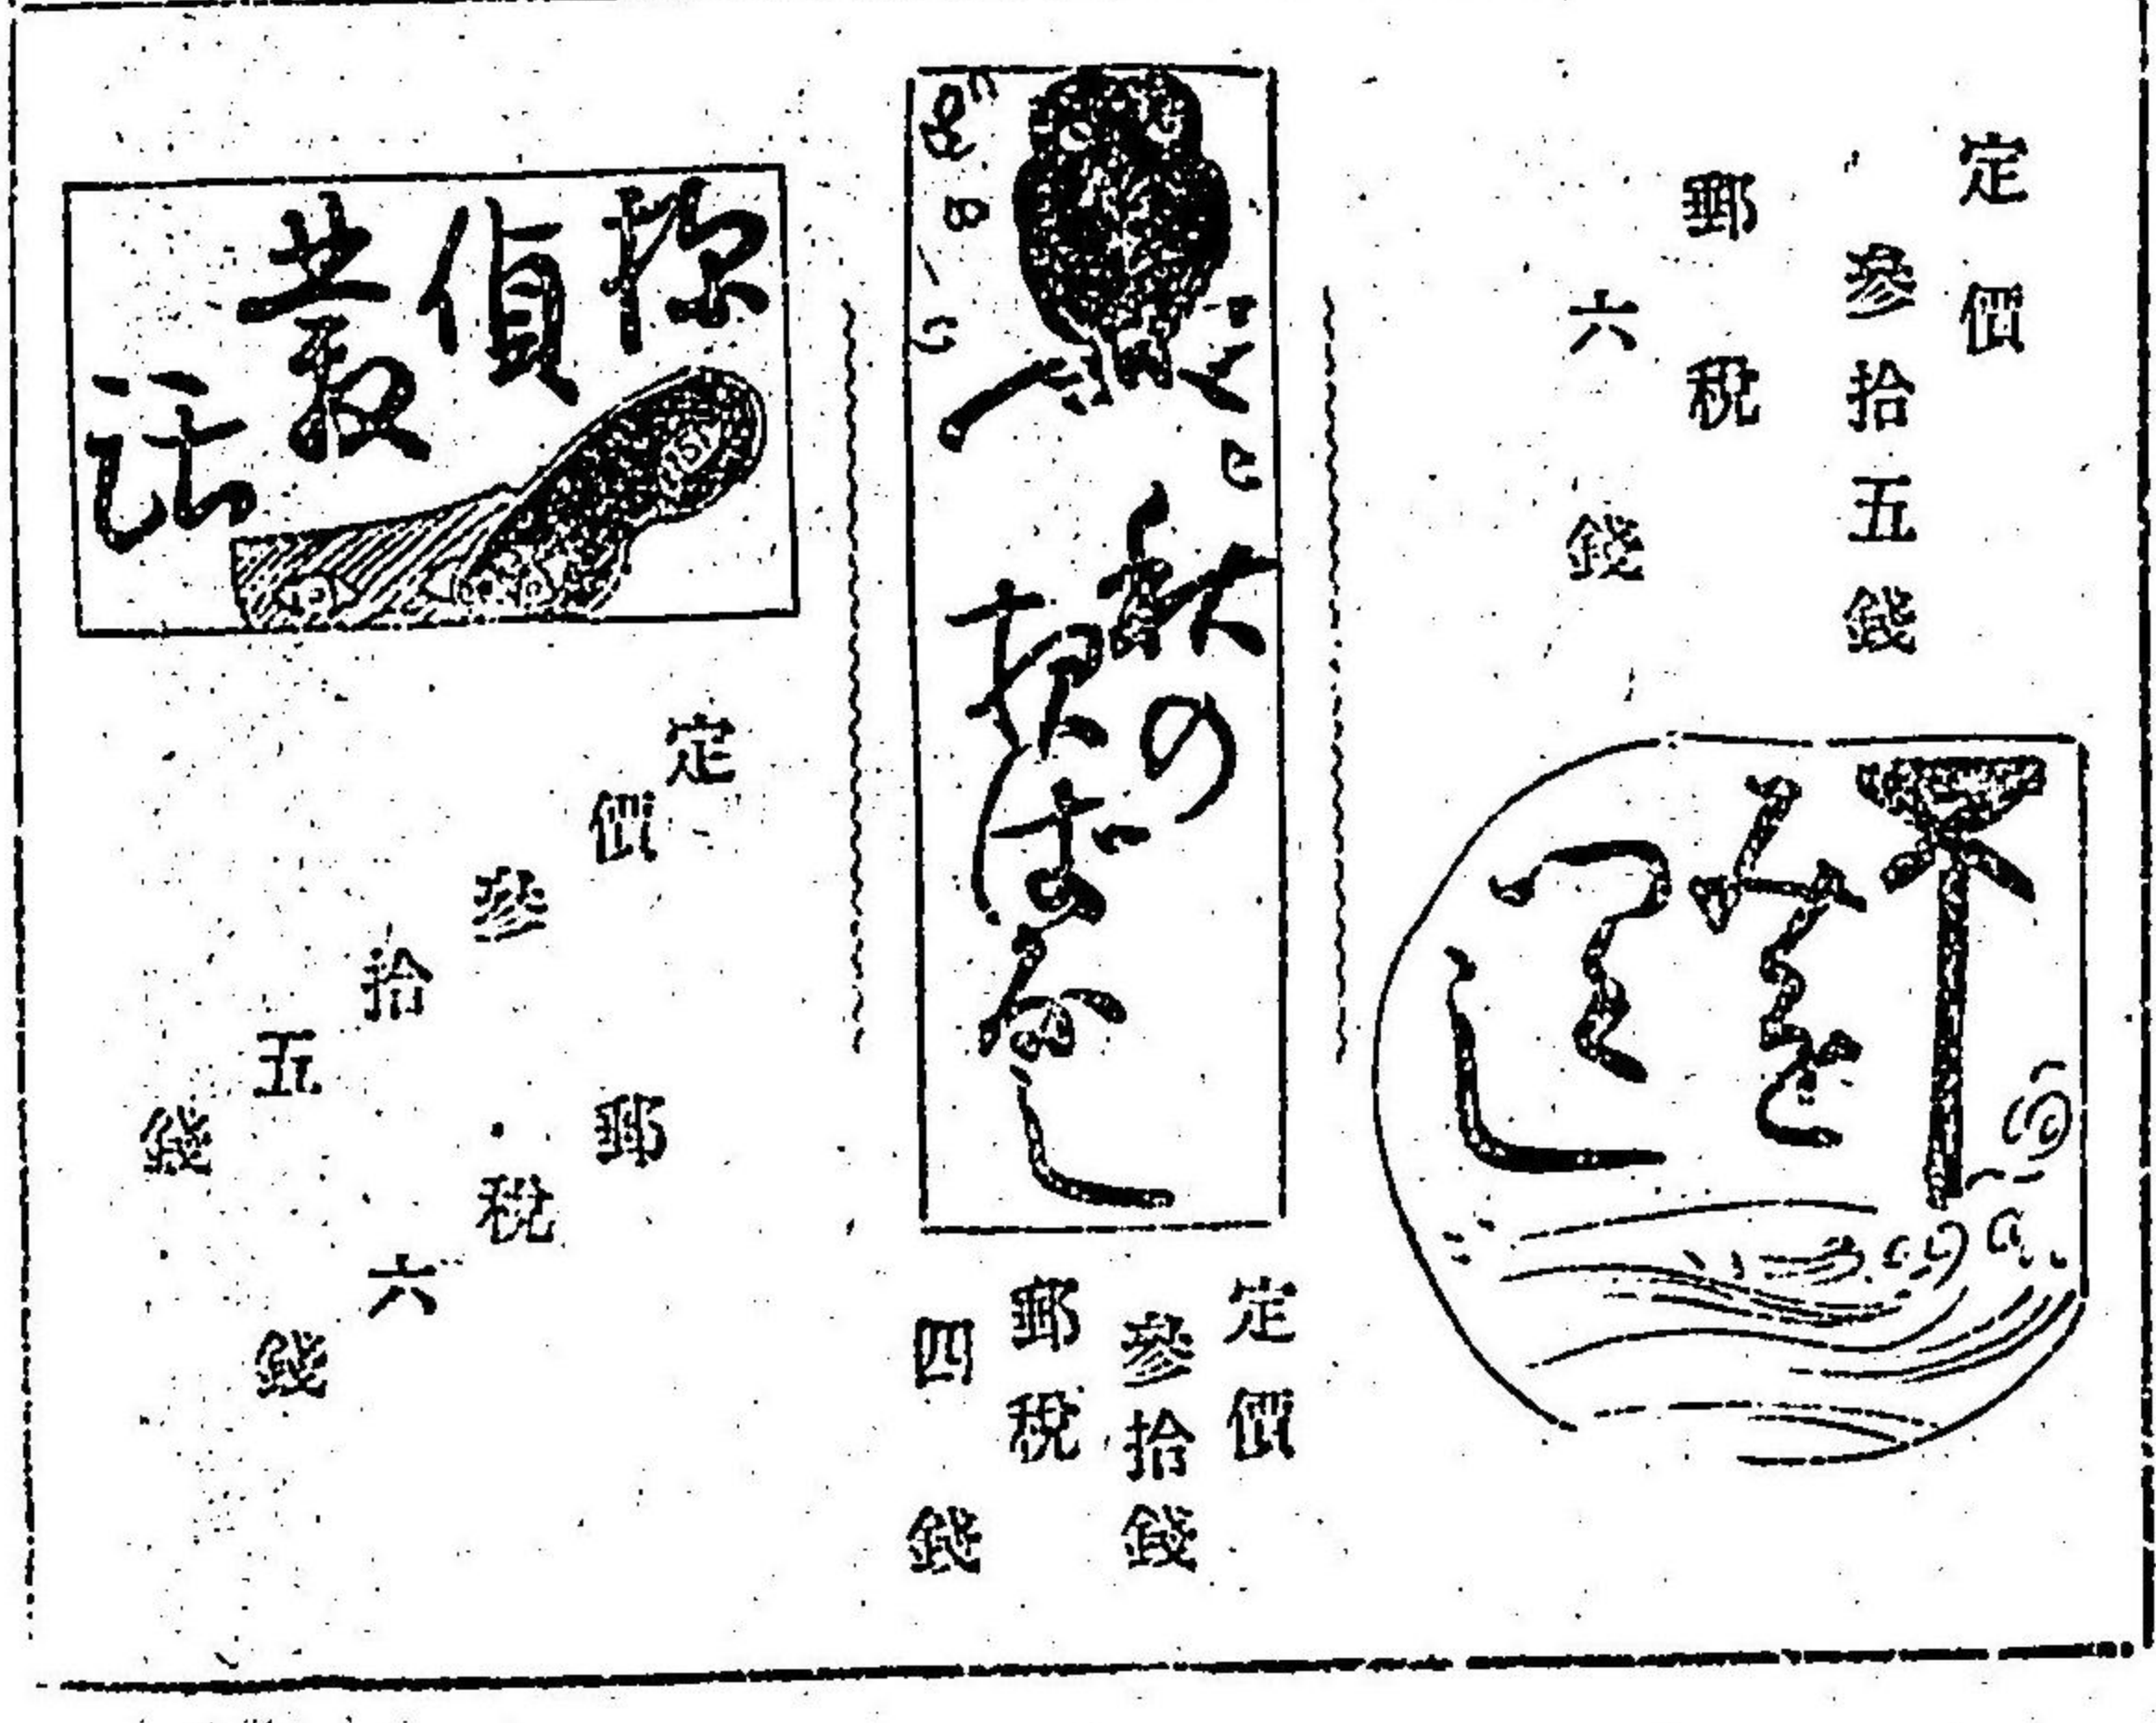 定價
參拾五錢
郵稅
六錢
みをつくし
秋の
夜ばなし
定價
參拾錢
郵稅
四錢
探偵叢話
定價參拾五錢
郵稅六錢